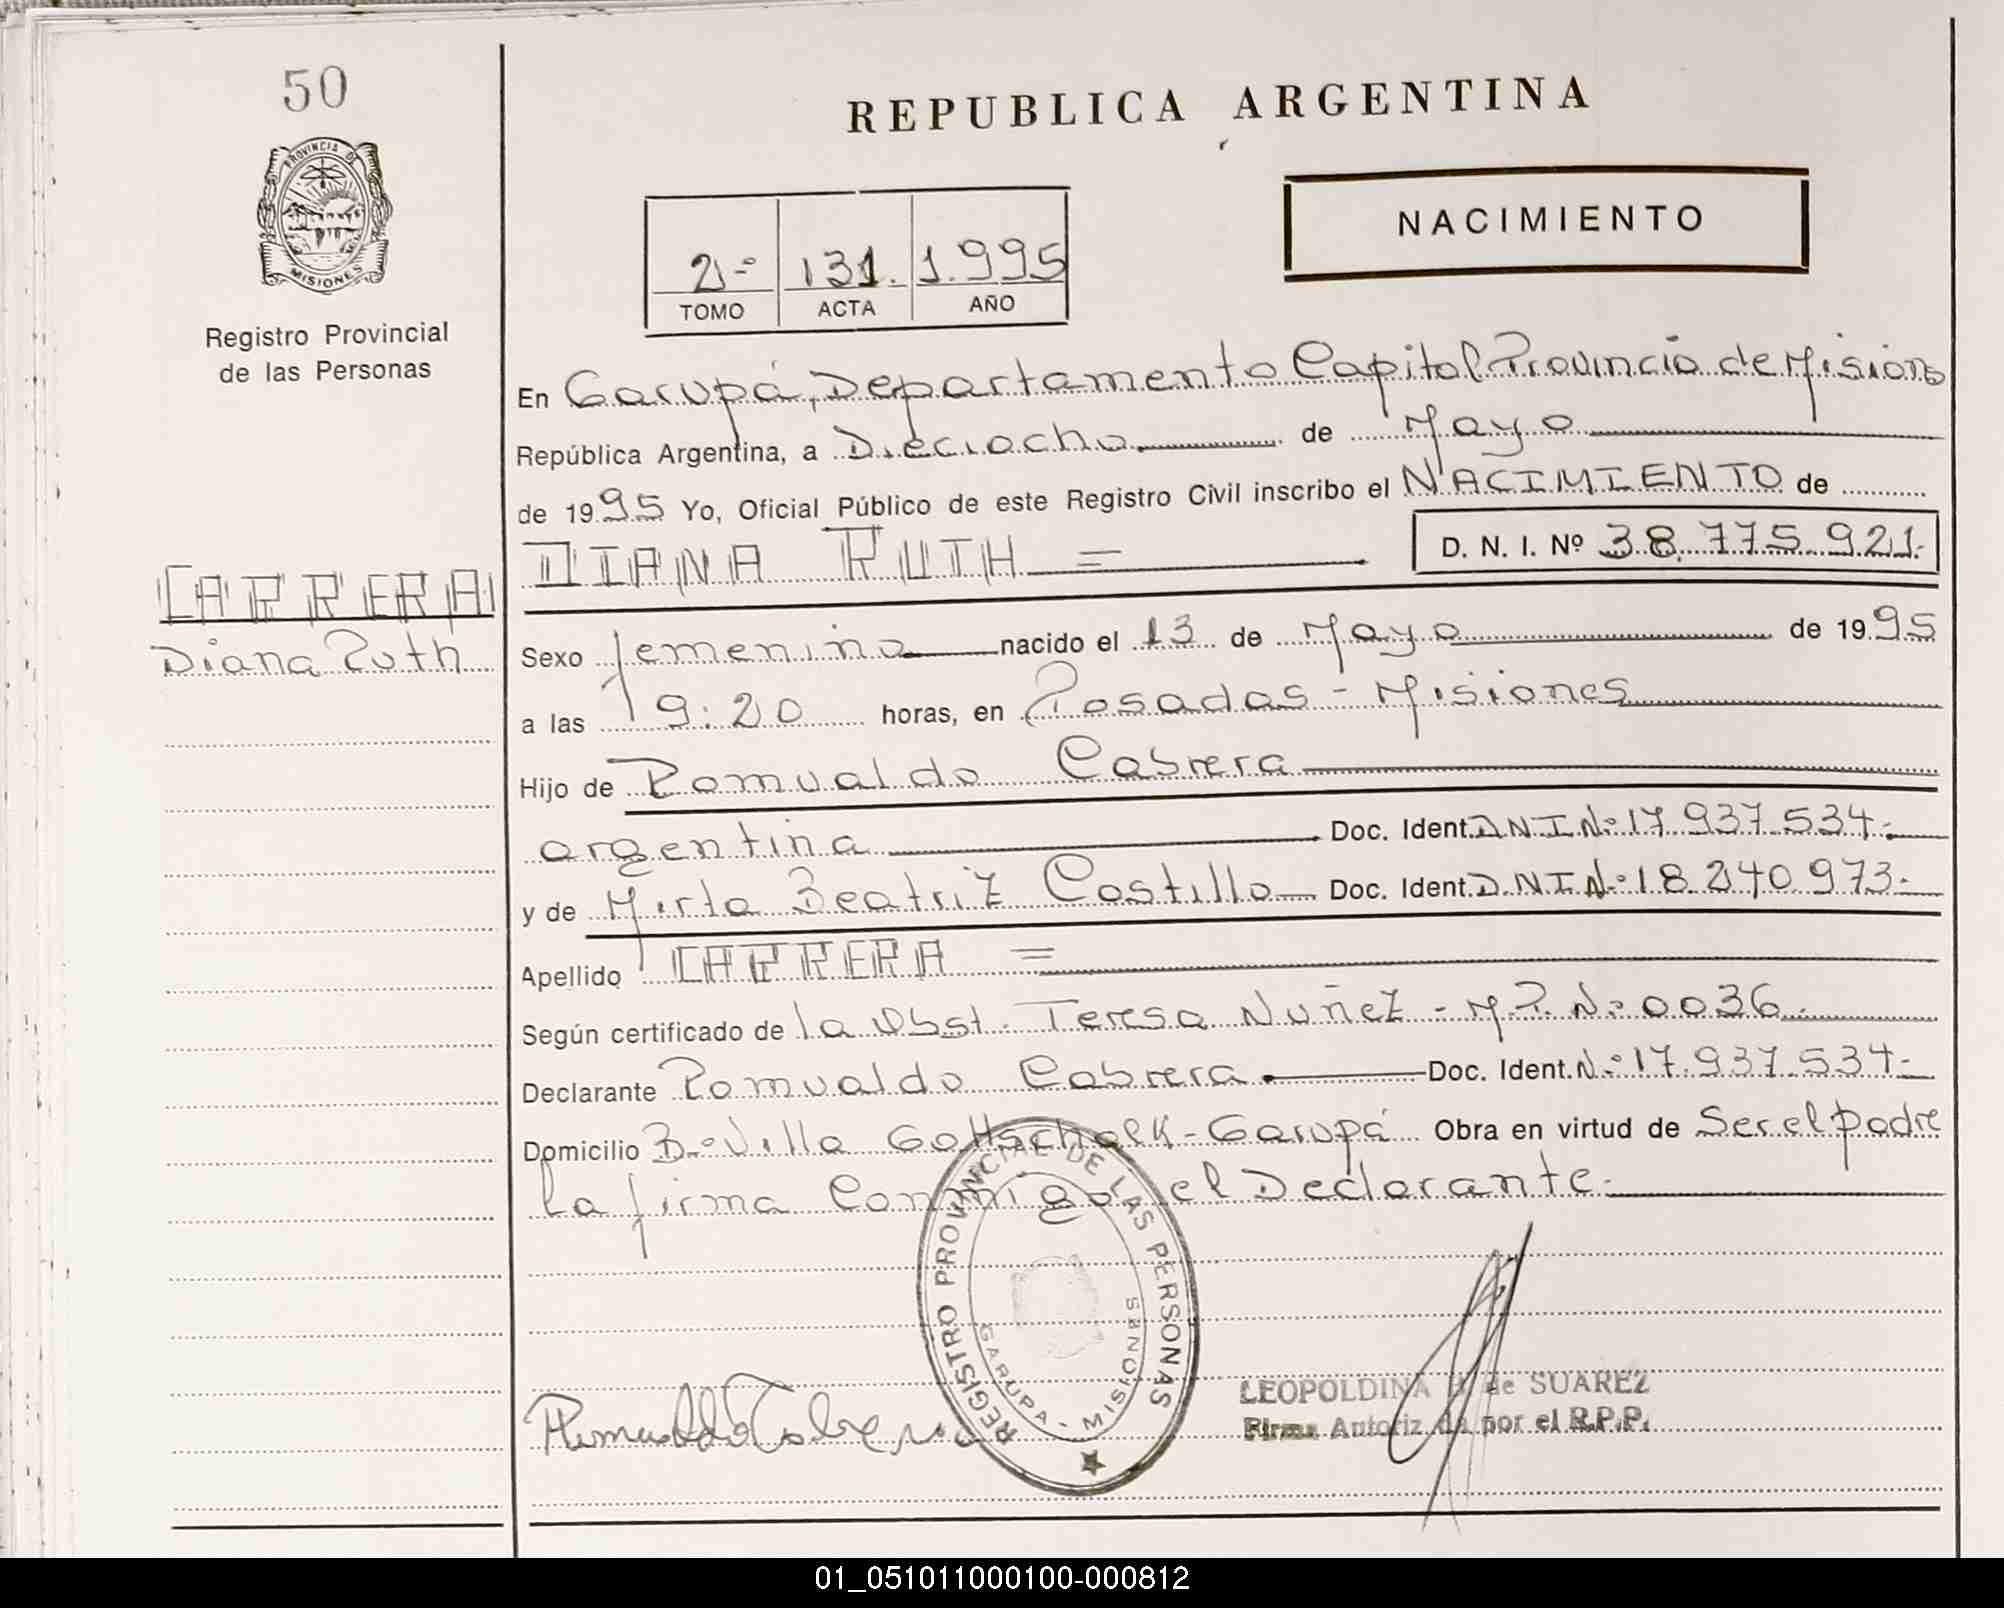 50
REPUBLICA ARGENTINA
PROVINCIA DE
MISIONES
NACIMIENTO
2º 131. 1.995
TOMO ACTA AÑO
Registro Provincial
de las Personas
En Garupá, Departamento Capital Provincia de Misiones
República Argentina, a Dieciocho de Mayo
de 1995 Yo, Oficial Público de este Registro Civil inscribo el NACIMIENTO de
DIANA RUTH = D. N. I. Nº 38.775.921.-
CABRERA
Diana Ruth
Sexo femenino nacido el 13 de Mayo de 1995
a las 19:20 horas, en Posadas - Misiones
Hijo de Romualdo Cabrera
argentina Doc. Ident. DNI Nº 17.937.534.-
y de Mirta Beatriz Castillo Doc. Ident. DNI Nº 18.240.973.-
Apellido CABRERA =
Según certificado de la Obst. Teresa Nuñez - M.P. Nº 0036.-
Declarante Romualdo Cabrera. Doc. Ident. Nº 17.937.534.-
Domicilio Bº Villa Gottschalk - Garupá Obra en virtud de Ser el padre
La firma Conmigo el Declarante.
REGISTRO PROVINCIAL DE LAS PERSONAS
GARUPA - MISIONES
Romualdo Cabrera
LEOPOLDINA de SUAREZ
Firma Autorizada por el R.P.P.
01_051011000100-000812